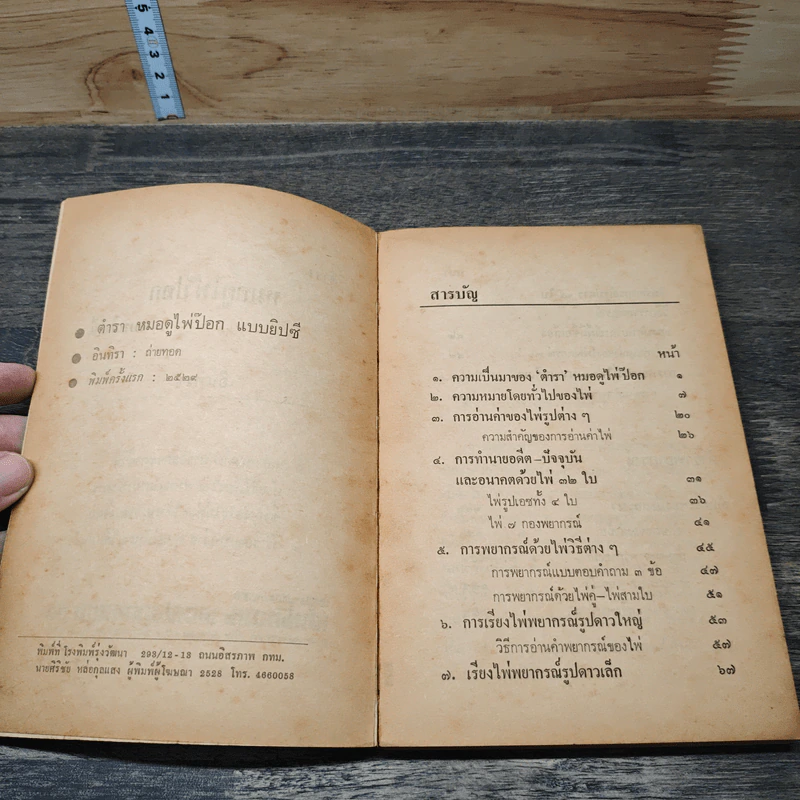 5 4 3 2 1
ตำรา หมอดูไพ่ป๊อก แบบยิปซี
อินทิรา : ถ่ายทอด
พิมพ์ครั้งแรก : ๒๕๒๙
พิมพ์ที่ โรงพิมพ์รุ่งวัฒนา 293/12-13 ถนนอิสรภาพ กทม.
นายศิริชัย หล่อกุลแสง ผู้พิมพ์ผู้โฆษณา 2528 โทร. 4660058
สารบัญ
หน้า
๑. ความเป็นมาของ 'ตำรา' หมอดูไพ่ป๊อก ๑
๒. ความหมายโดยทั่วไปของไพ่ ๗
๓. การอ่านค่าของไพ่รูปต่าง ๆ ๒๐
ความสำคัญของการอ่านค่าไพ่ ๒๖
๔. การทำนายอดีต-ปัจจุบัน
และอนาคตด้วยไพ่ ๓๒ ใบ ๓๑
ไพ่รูปเอซทั้ง ๔ ใบ ๓๖
ไพ่ ๗ กองพยากรณ์ ๔๑
๕. การพยากรณ์ด้วยไพ่วิธีต่าง ๆ ๔๕
การพยากรณ์แบบตอบคำถาม ๓ ข้อ ๔๗
การพยากรณ์ด้วยไพ่คู่-ไพ่สามใบ ๕๑
๖. การเรียงไพ่พยากรณ์รูปดาวใหญ่ ๕๓
วิธีการอ่านคำพยากรณ์ของไพ่ ๕๗
๗. เรียงไพ่พยากรณ์รูปดาวเล็ก ๖๗